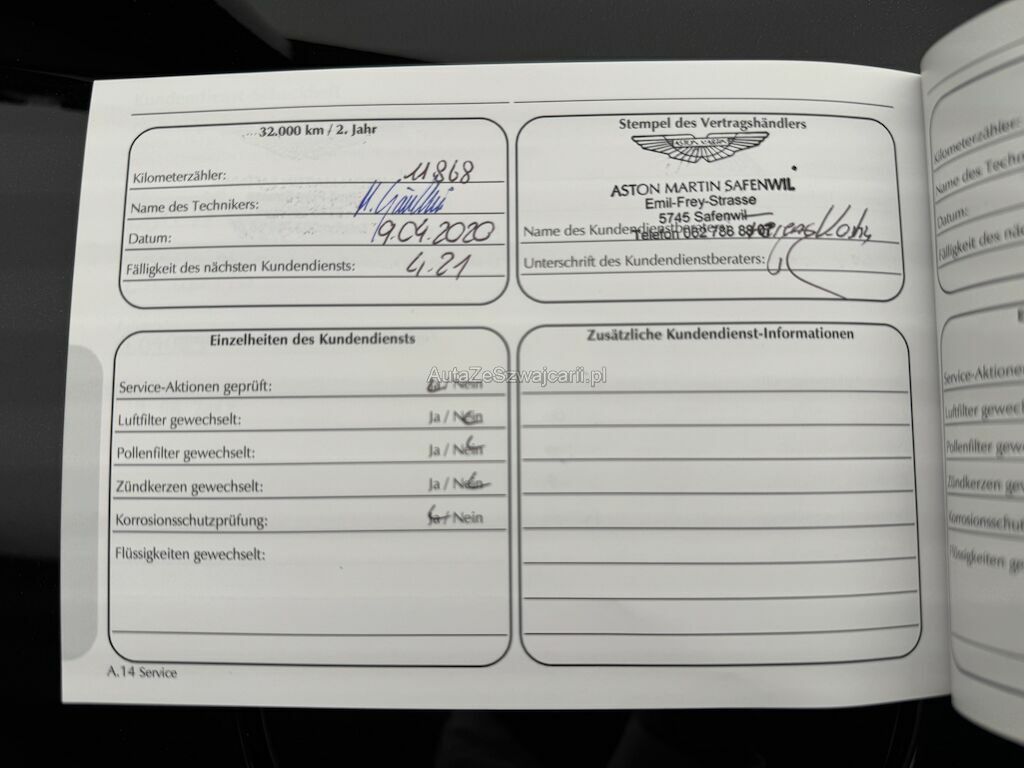 32.000 km / 2. Jahr
Kilometerzähler: 11868
Name des Technikers:
Datum: 19.04.2020
Fälligkeit des nächsten Kundendiensts: 4.21
Stempel des Vertragshändlers
ASTON MARTIN
ASTON MARTIN SAFENWIL
Emil-Frey-Strasse
5745 Safenwil
Telefon 062 788 88
Name des Kundendienstberaters:
Unterschrift des Kundendienstberaters:
Einzelheiten des Kundendiensts
Service-Aktionen geprüft: Ja / Nein
Luftfilter gewechselt: Ja / Nein
Pollenfilter gewechselt: Ja / Nein
Zündkerzen gewechselt: Ja / Nein
Korrosionsschutzprüfung: Ja / Nein
Flüssigkeiten gewechselt:
Zusätzliche Kundendienst-Informationen
AutaZeSzwajcarii.pl
A.14 Service
Kilometerzähler:
Name des Techn
Datum:
Fälligkeit des näc
Service-Aktionen
Luftfilter gewech
Pollenfilter gew
Zündkerzen gew
Korrosionsschut
Flüssigkeiten ge